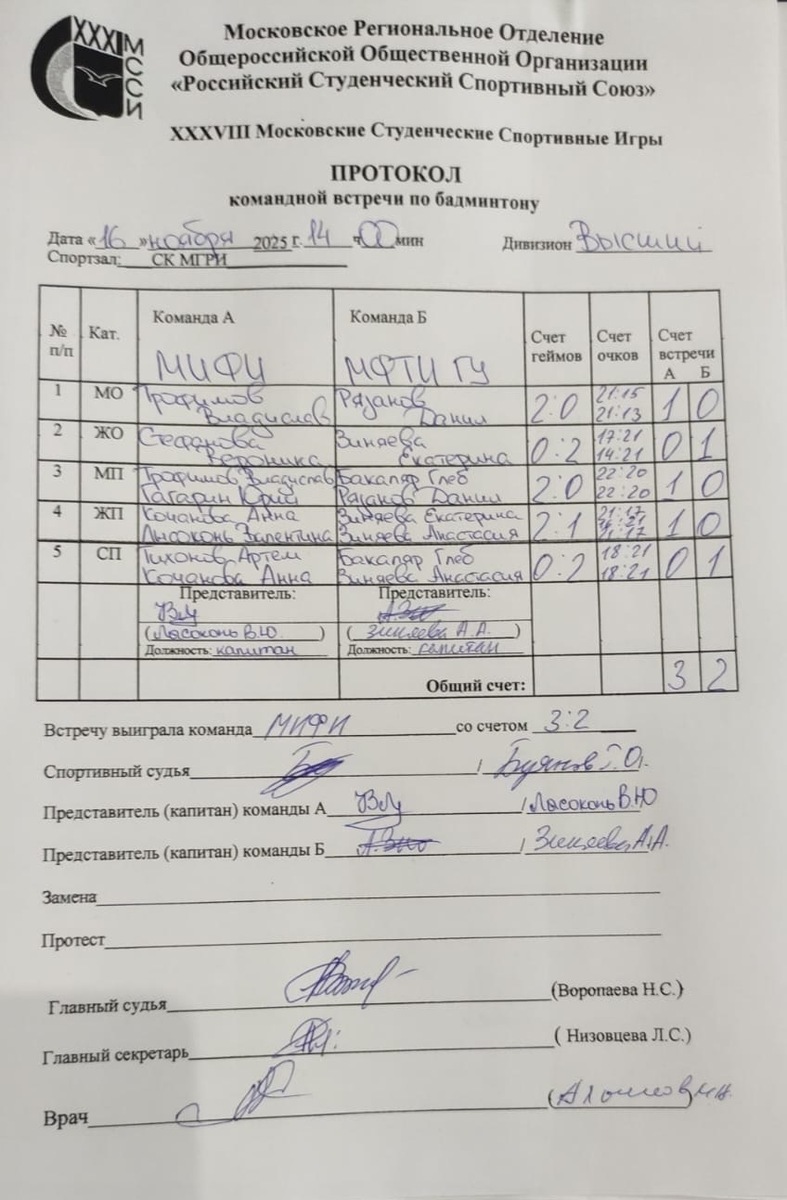 XXXI МССИ
Московское Региональное Отделение
Общероссийской Общественной Организации
«Российский Студенческий Спортивный Союз»
XXXVIII Московские Студенческие Спортивные Игры
ПРОТОКОЛ
командной встречи по бадминтону
Дата «16» ноября 2025 г. 14 ч 00 мин Дивизион Высший
Спортзал: СК МГРИ
№ п/п Кат. Команда А Команда Б Счет геймов Счет очков Счет встречи А Б
МИФИ МФТИ ГУ
1 МО Трофимов Владислав Рязанов Данил 2:0 21:15 21:13 1 0
2 ЖО Стефанова Вероника Зиняева Екатерина 0:2 17:21 14:21 0 1
3 МП Трофимов Владислав Гагарин Юрий Бакаляр Глеб Рязанов Данил 2:0 22:20 22:20 1 0
4 ЖП Кочанова Анна Лысоконь Валентина Зиняева Екатерина Зиняева Анастасия 2:1 21:17 21:17 1 0
5 СП Тихонов Артем Кочанова Анна Бакаляр Глеб Зиняева Анастасия 0:2 18:21 18:21 0 1
Представитель: Представитель:
(Лысоконь В.Ю.) (Зиняева А.А.)
Должность: капитан Должность: капитан
Общий счет: 3 2
Встречу выиграла команда МИФИ со счетом 3:2
Спортивный судья / Буянов Г.О.
Представитель (капитан) команды А / Лысоконь В.Ю
Представитель (капитан) команды Б / Зиняева А.А.
Замена
Протест
Главный судья (Воропаева Н.С.)
Главный секретарь ( Низовцева Л.С.)
Врач